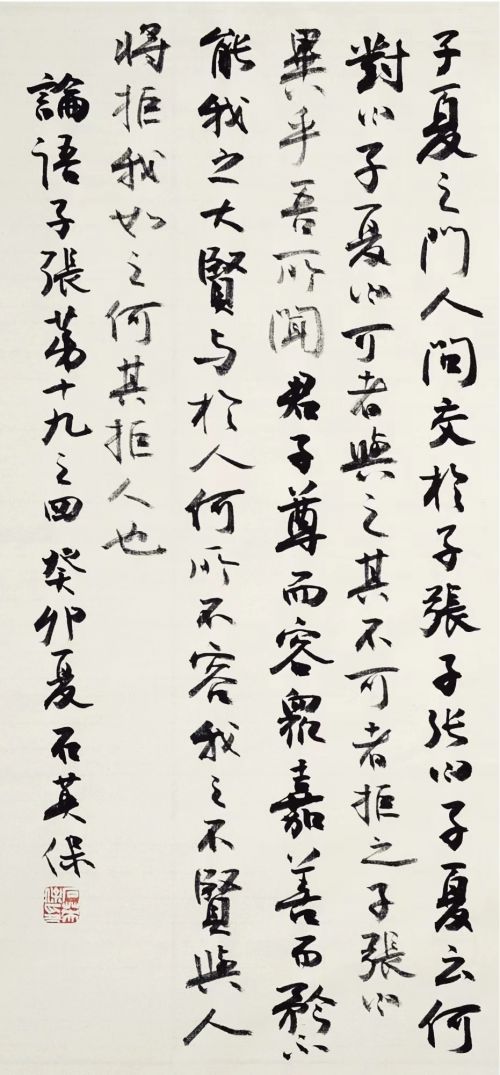 子夏之門人問交於子張子张曰子夏云何
對曰子夏曰可者與之其不可者拒之子張曰
異乎吾所聞君子尊而容眾嘉善而矜不
能我之大賢与於人何所不容我之不賢與人
將拒我如之何其拒人也
論語子張第十九之四癸卯夏石英保